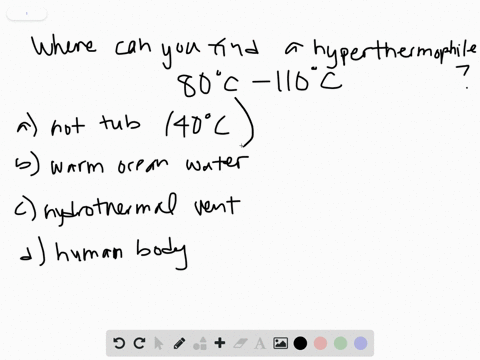 Where can you find a hyperthermophile
80°C - 110°C ?
a) hot tub (40°C)
b) warm ocean water
c) hydrothermal vent
d) human body
A